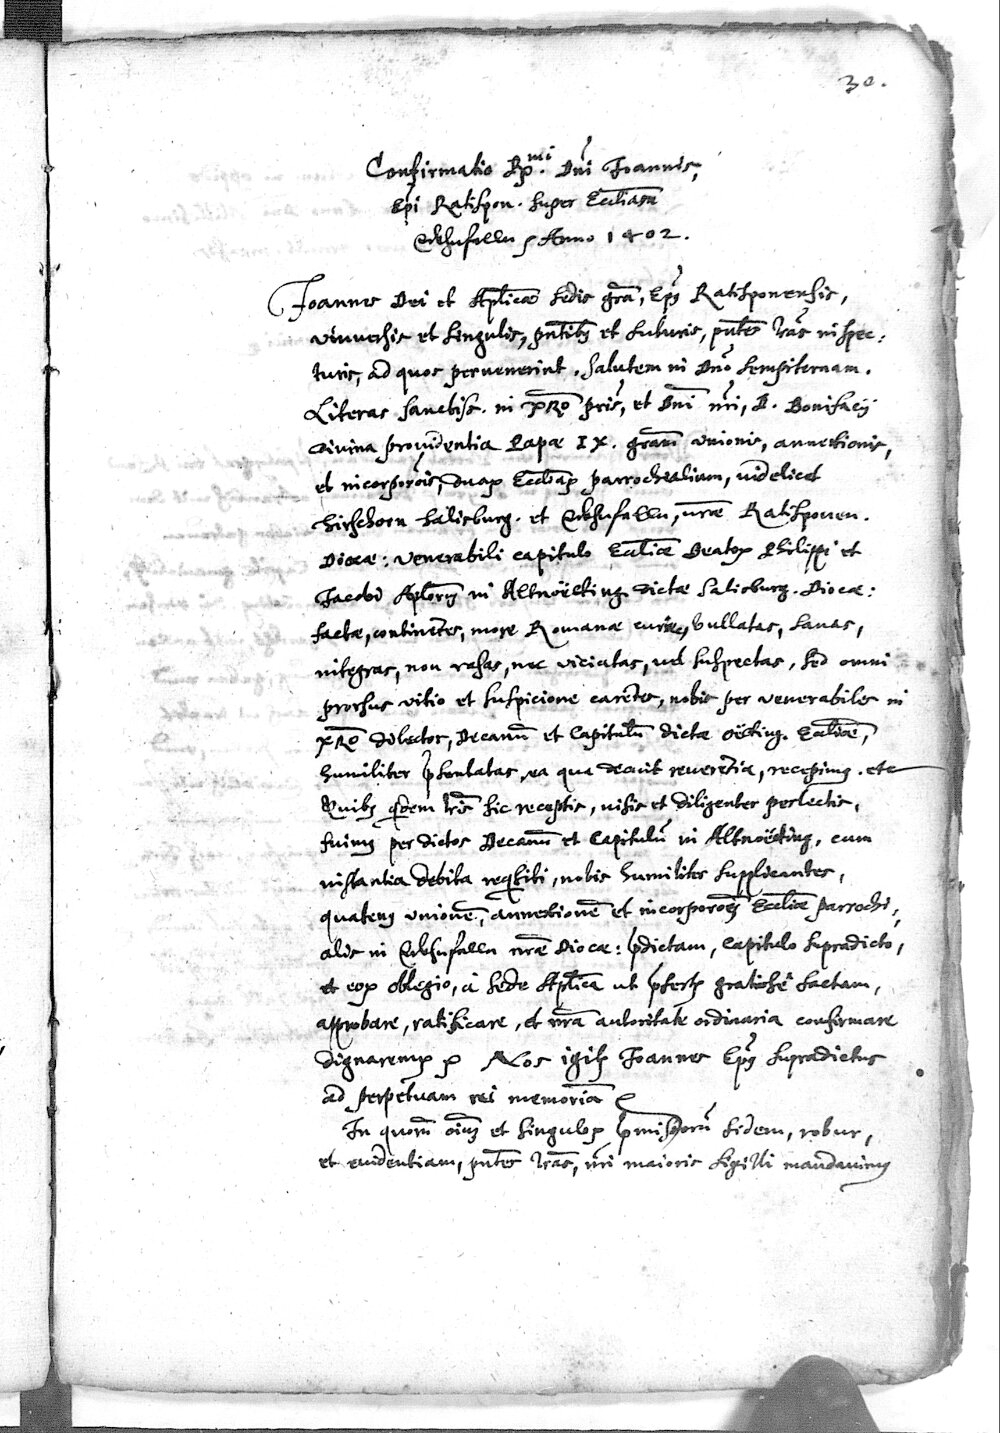 30.
Confirmatio Rp.mi Dni Joannis,
Epi Ratispon. super Ecctiam
Anno 1402.
Joannes Dei et Aplicae sedis gra, Eps Ratisponensis,
universis et singulis, pntibs et futuris, pntes lras inspec:
turis, ad quos pervenerint. Salutem in Dno sempiternam.
Literas sanctiss. in XRO pris, et Dni nri, D. Bonifacij
divina providentia Papae IX. gram unionis, annexionis,
et incorporois, duar Eccliar parrochialium, videlicet
Hirschorn Salisburg. et nrae Ratisponen.
Dioce: venerabili capitulo Eccliae Beator Philippi et
Jacobi Aplorum in Altnoëting dictae Salisburg. Dioce:
factae, continentes, more Romanae curiae, bullatas, sanas,
integras, non rasas, nec viciatas, vel suspectas, sed omni
prorsus vitio et suspicione carentes, nobis per venerabiles in
XRO dilectos, Decanum et Capitulum dictae oëting. Eccliae,
humiliter psentatas, ea qua decuit reverentia, recepimus. etc
Quibs qdem lris sic receptis, visis et diligenter perlectis,
fuims per dictos Decanum et Capitulum in Altnoëting, cum
instantia debita reqsiti, nobis humiliter supplicantes,
quatens unionem, annexionem et incorporoem Eccliae parrochi,
alis in nrae Dioce: pdictam, Capitulo supradicto,
et eor Collegio, à Sede Aplica ut pfertr gratiose factam,
approbare, ratificare, et nra autoritate ordinaria confirmare
dignaremr Nos igitr Joannes Eps supradictus
ad perpetuam rei memoriam
In quorum oium et singulor pmissorum fidem, robur,
et evidentiam, pntes lras, nri maioris sigilli mandavims